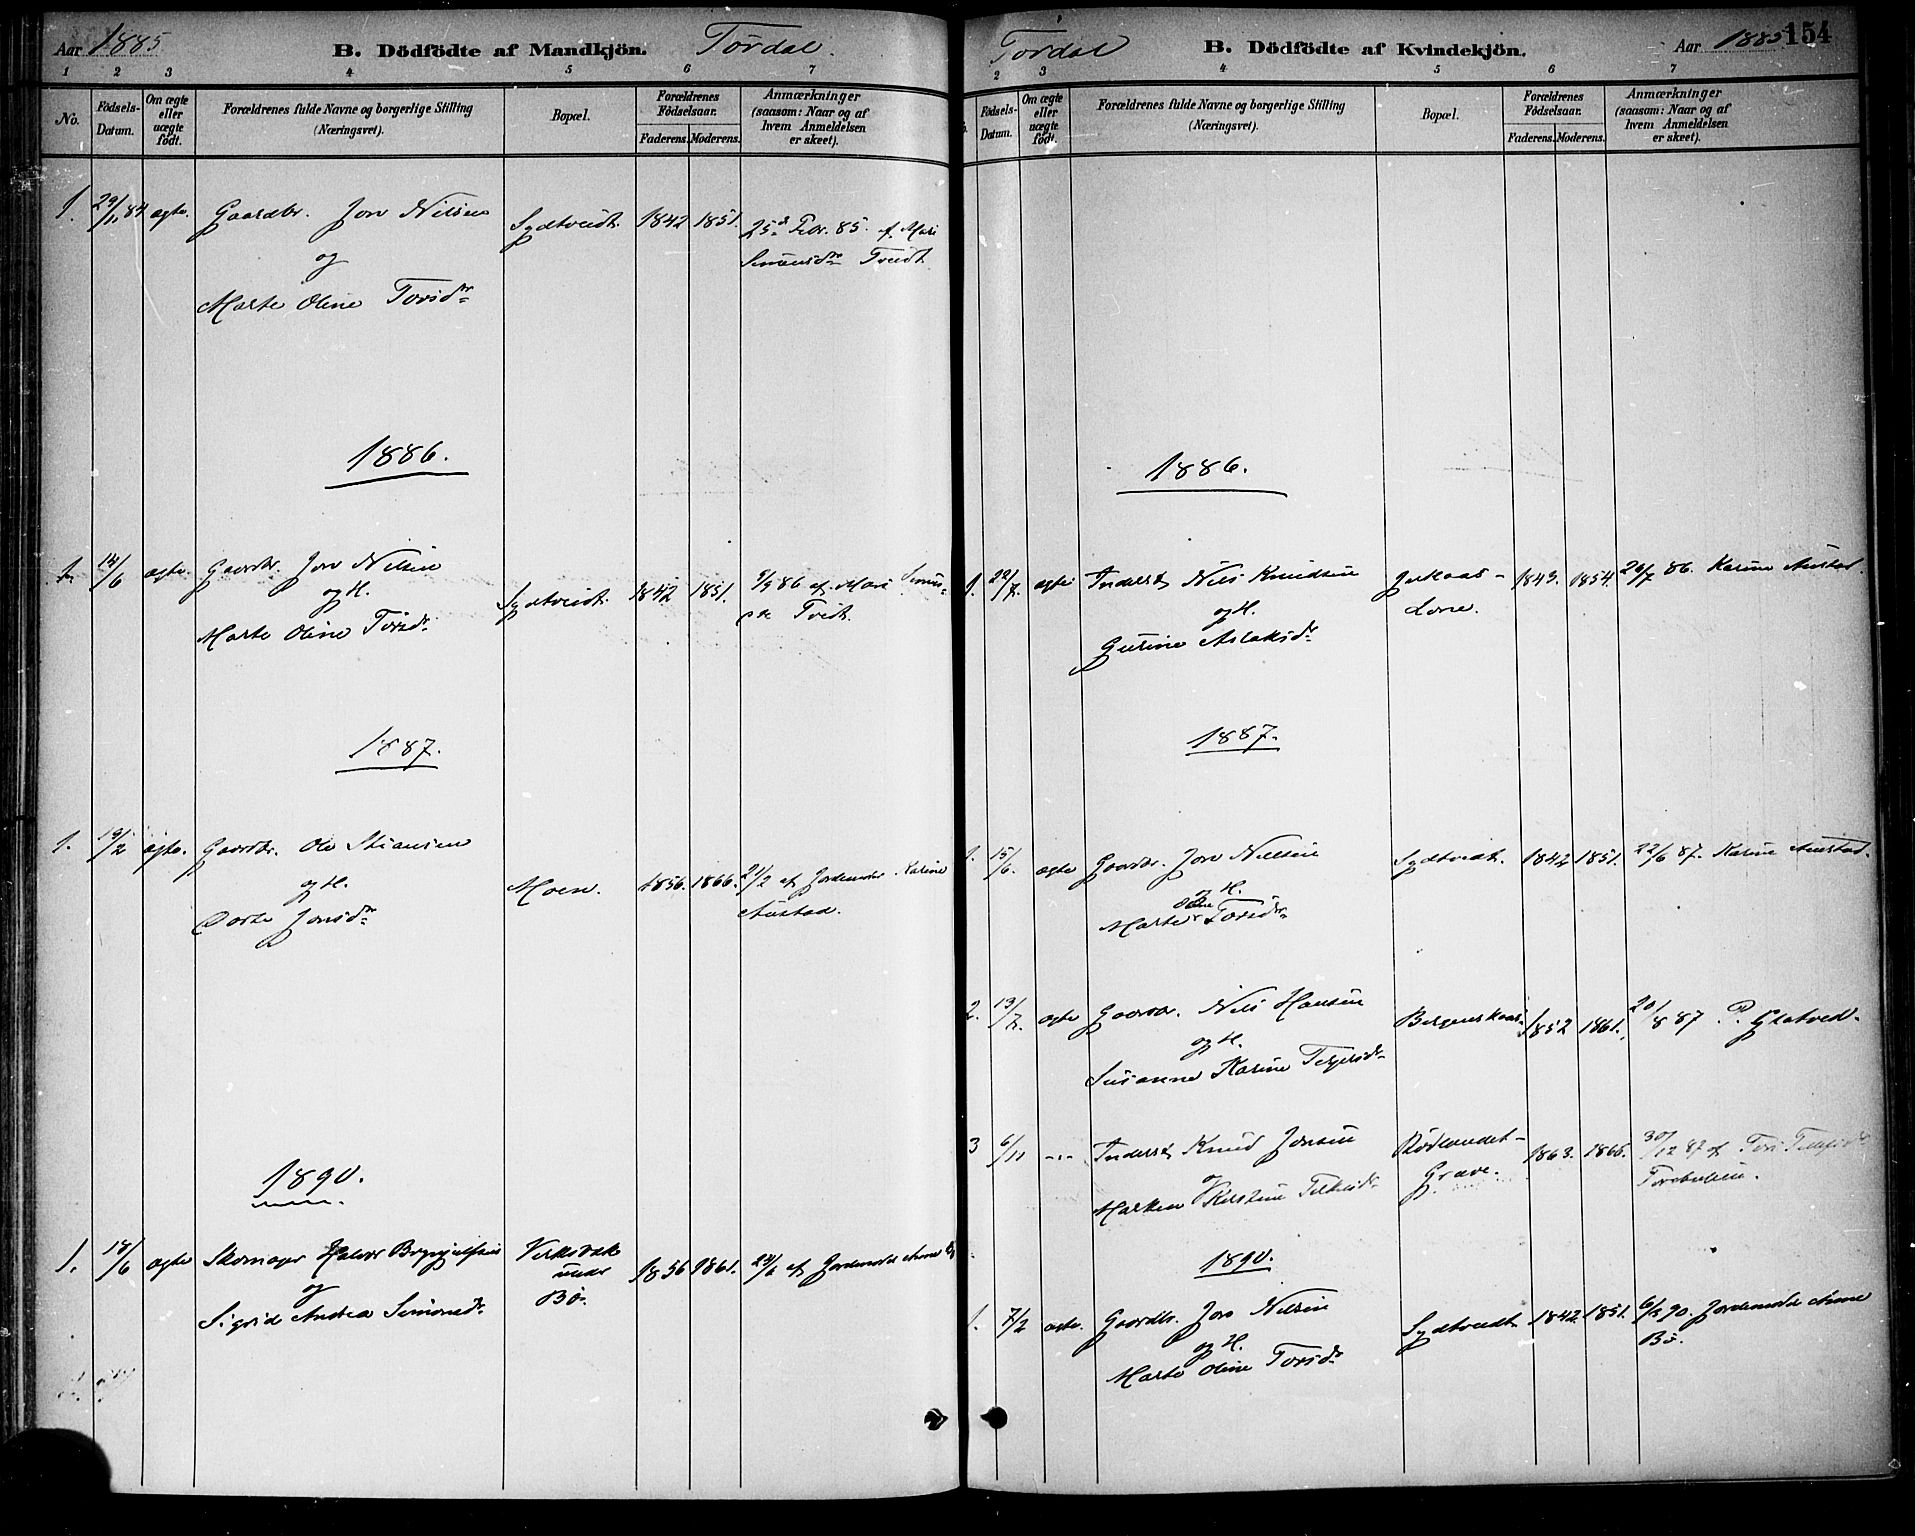 Aar 1885 B. Dödfödte af Mandkjön. Tørdal.
1 2 3 4 5 6 7
No. Födsels-Datum. Om ægte eller uægte födt. Forældrenes fulde Navne og borgerlige Stilling (Næringsvei). Bopæl. Forældrenes Födselsaar. Faderens. Moderens. Anmærkninger (saasom: Naar og af hvem Anmeldelsen er skeet).
1. 29/11 84 ægte. Gaardbr. Jon Nilsen Sydtveidt. 1842 1851. 25d Febr. 85. af Mari
og Simonsdr Tveidt
Marte Oline Torsdr
1886.
1. 14/6 ægte. Gaardbr. Jon Nilsen Sydtveidt. 1842 1851. 9/9 86 af Mari Simons-
og H. dr Tveidt.
Marte Oline Torsdr
1887.
1. 19/2 ægte. Gaardbr. Ole Stiansen Moen. 1856. 1866. 21/2 af Jordemoder Karine
og H. Austad.
Dorte Jonsdr
1890.
1. 18/6 ægte Skomager Halvor Brynjulfsen 1856 1861. 24/6 af Jordemoder Anne Bø
og under
Sigrid Andrea Simonsdr Bö.
Tørdal B. Dödfödte af Kvindekjön. Aar 1885 154
2 3 4 5 6 7
Födsels-Datum. Om ægte eller uægte födt. Forældrenes fulde Navne og borgerlige Stilling (Næringsvei). Bopæl. Forældrenes Födselsaar. Faderens. Moderens. Anmærkninger (saasom: Naar og af hvem Anmeldelsen er skeet).
1886.
1. 22/7. ægte Inderst Nils Knudsen 1843. 1854. 26/7 86. Karine Austad.
og H.
Gurine Aslaksdr
1887.
1. 15/6. ægte Gaardbr. Jon Nilsen Sydtveidt. 1842 1851. 22/6 87. Karine Austad.
og H.
Marte Oline Torsdr
2. 13/7. ægte Gaardbr. Nils Hansen Bergenskaas. 1852 1861. 20/8 87 P. Gjetved.
og H.
Susanne Karine Terjesdr
3 6/11 -"- Inderst Knud Jonsen 1863. 1866. 30/12 87 af
og Grave.
Marken Kirstine
1890.
1. 7/2 ægte. Gaardbr. Jon Nilsen Sydtveidt 1842 1851. 6/3 90. Jordemoder Anne
og H. Bö.
Marte Oline Torsdr